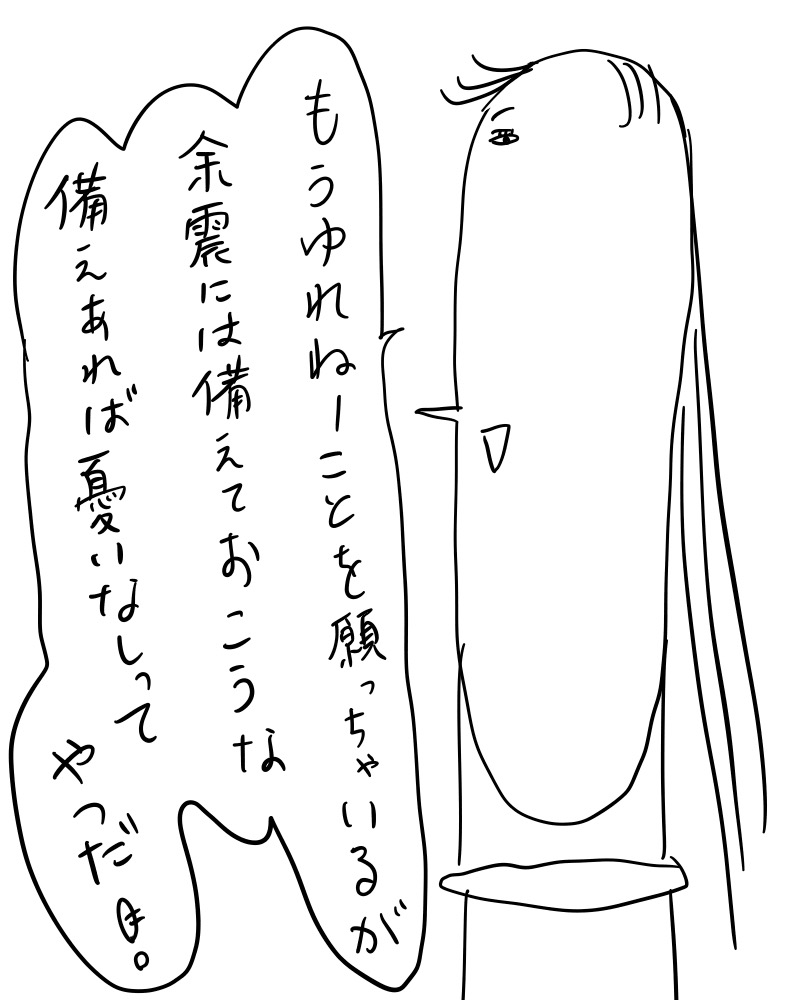 もうゆれねーことを願っちゃいるが
余震には備えておこうな
備えあれば憂いなしって
やつだよ。